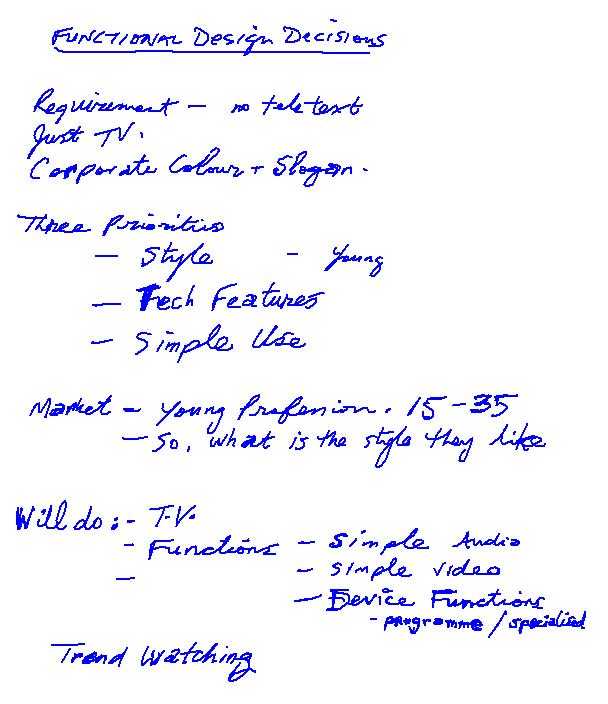 FUNCTIONAL Design Decisions
Requirement - no teletext
Just TV.
Corporate Colour + Slogan.
Three Priorities
- Style - Young
- Tech Features
- Simple Use
Market - Young Profession. 15-35
- So, what is the style they like
Will do :- T.V.
- Functions - Simple Audio
- - Simple video
- Device Functions
- programme / specialised
Trend Watching